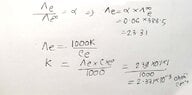 Λe/Λe∞ = α ⇒ Λe = α × Λe∞
= 0.06 × 388.5
= 23.31
Λe = 1000K/Ce
K = Λe × Ce/1000 = 23.31 × 0.1/1000
= 2.331 × 10⁻³ ohm⁻¹ cm⁻¹